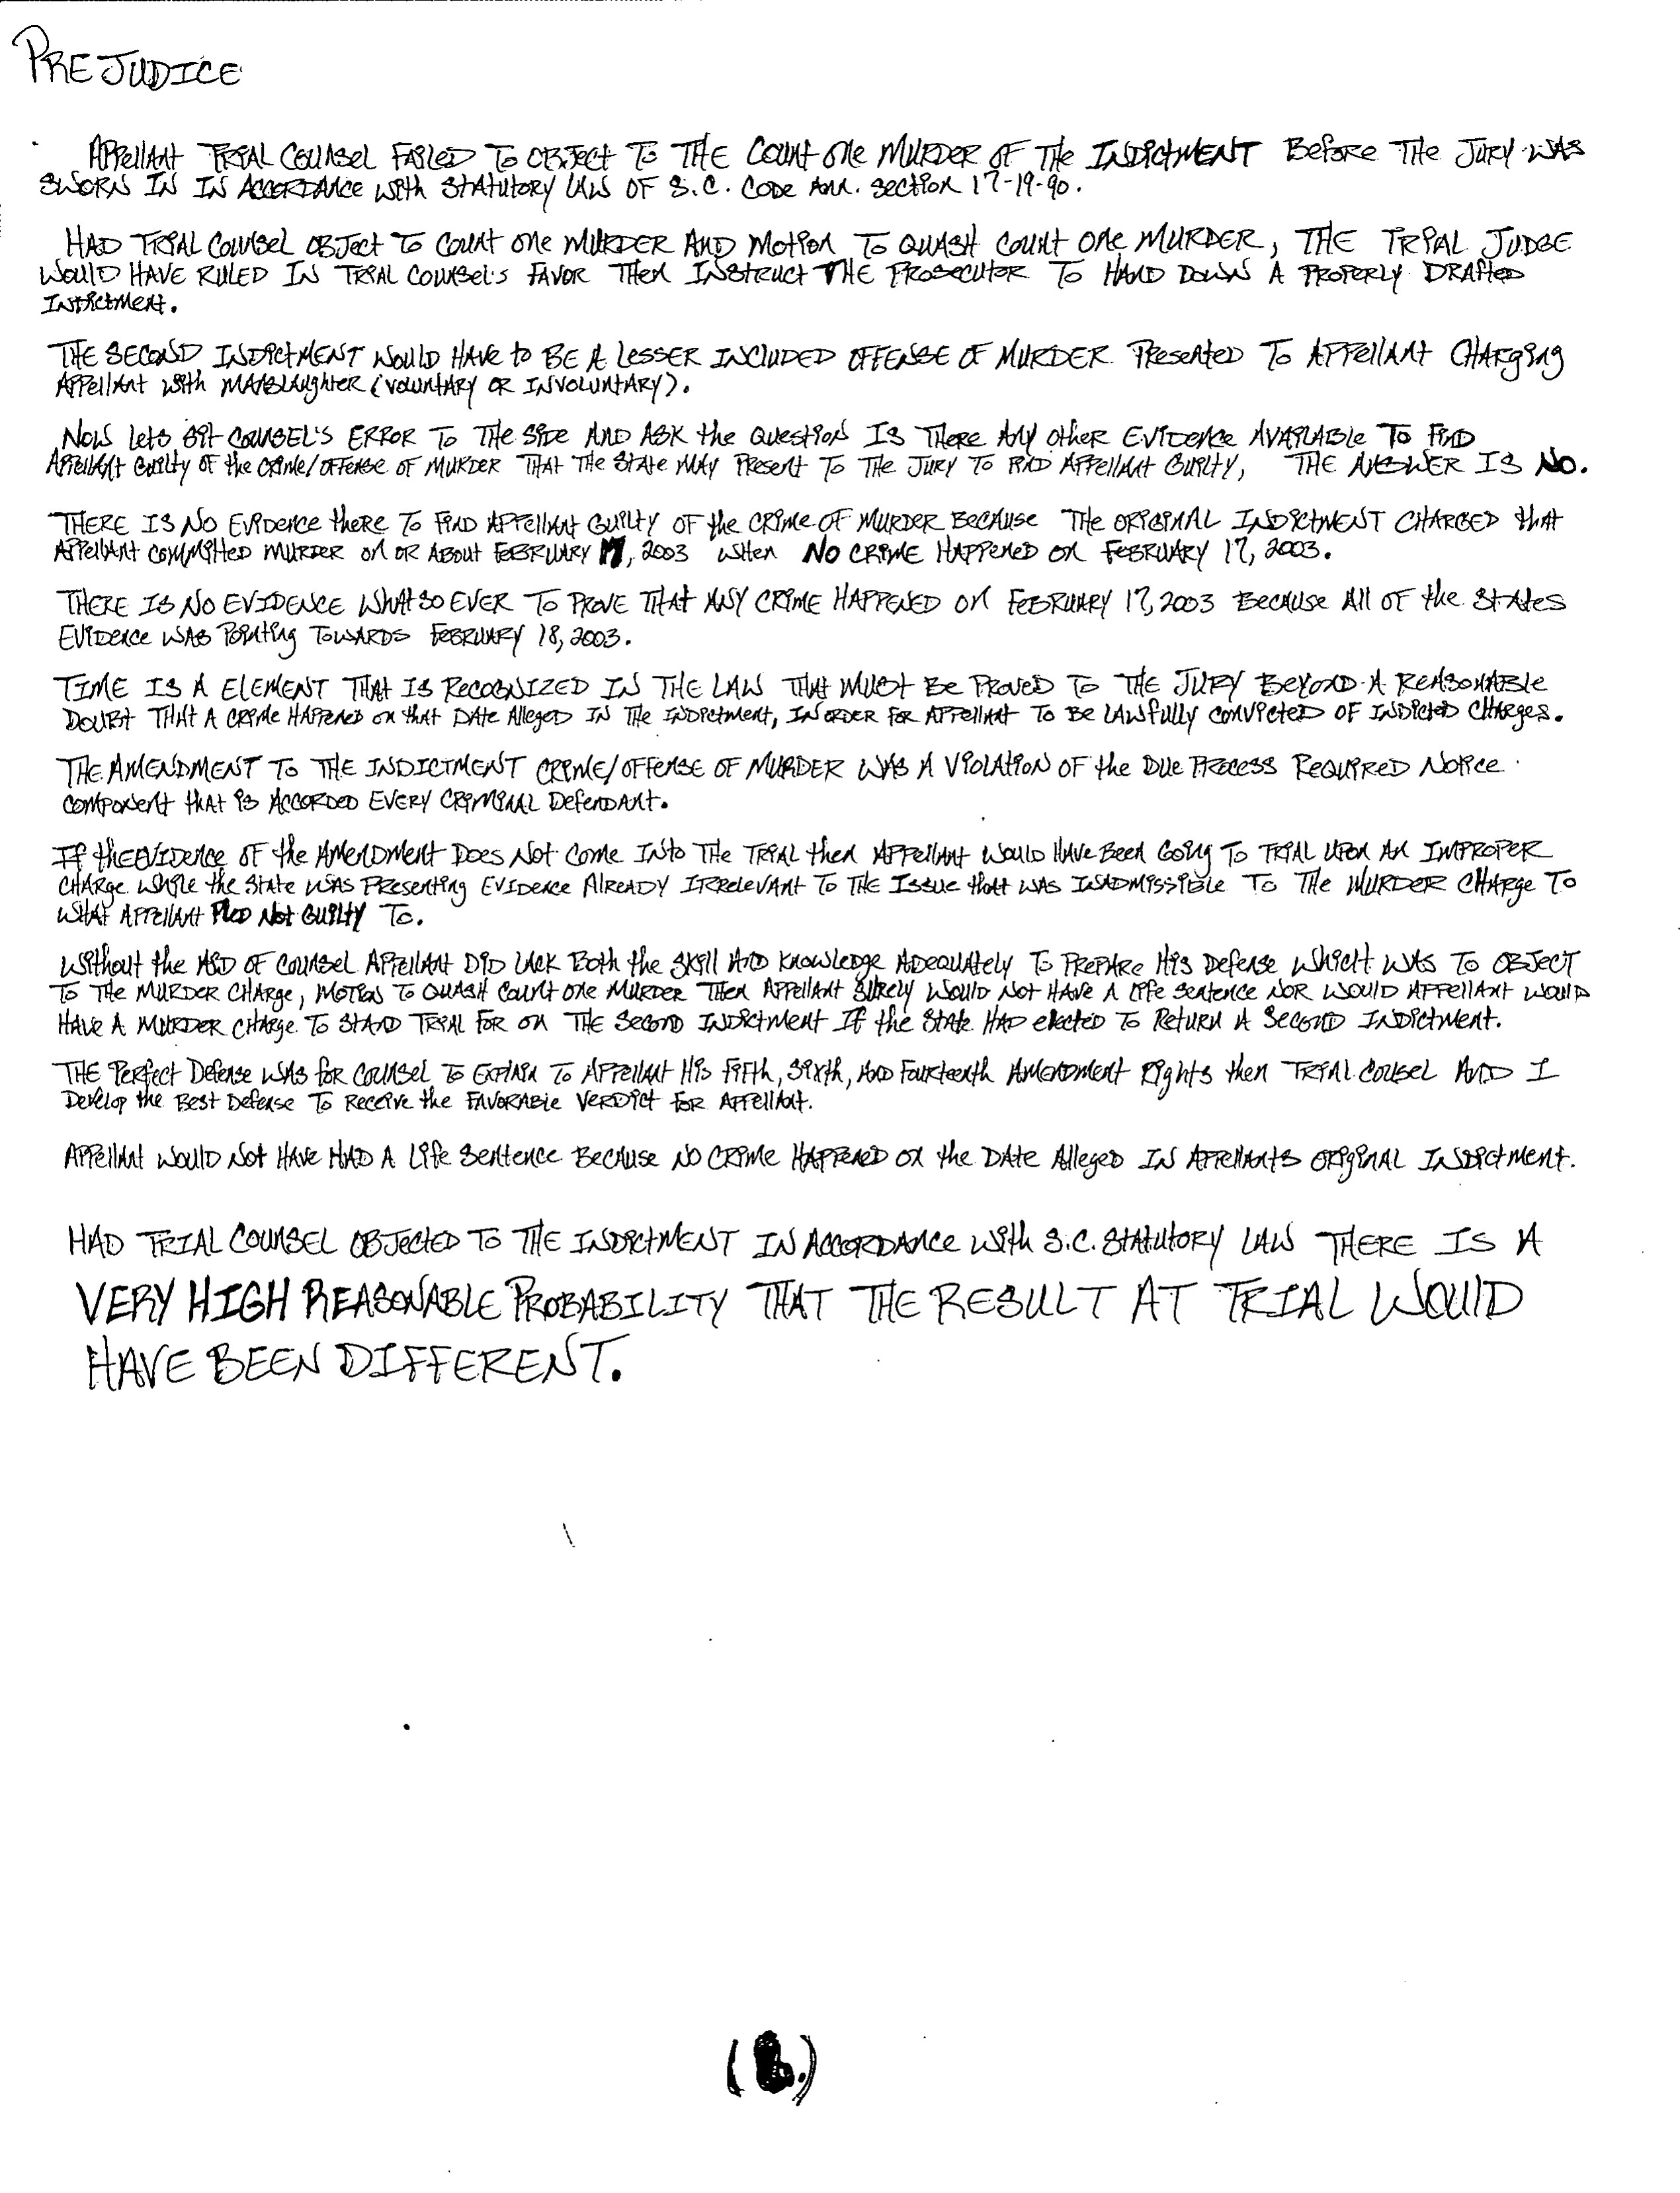 PREJUDICE
APPellANT TRIAL COUNSEL FAILED TO OBJECT TO THE COUNT ONE MURDER OF THE INDICTMENT BEFORE THE JURY WAS
SWORN IN IN ACCORDANCE WITH STATUTORY LAW OF S.C. CODE ANN. SECTION 17-19-90.
HAD TRIAL COUNSEL OBJECT TO COUNT ONE MURDER AND MOTION TO QUASH COUNT ONE MURDER, THE TRIAL JUDGE
WOULD HAVE RULED IN TRIAL COUNSEL'S FAVOR THEN INSTRUCT THE PROSECUTOR TO HAND DOWN A PROPERLY DRAFTED
INDICTMENT.
THE SECOND INDICTMENT WOULD HAVE TO BE A LESSER INCLUDED OFFENSE OF MURDER PRESENTED TO APPELLANT CHARGING
APPELLANT WITH MANSLAUGHTER (VOLUNTARY OR INVOLUNTARY).
NOW LETS SIT COUNSEL'S ERROR TO THE SIDE AND ASK THE QUESTION IS THERE ANY OTHER EVIDENCE AVAILABLE TO FIND
APPELLANT GUILTY OF THE CRIME/OFFENSE OF MURDER THAT THE STATE MAY PRESENT TO THE JURY TO FIND APPELLANT GUILTY, THE ANSWER IS NO.
THERE IS NO EVIDENCE THERE TO FIND APPELLANT GUILTY OF THE CRIME OF MURDER BECAUSE THE ORIGINAL INDICTMENT CHARGED THAT
APPELLANT COMMITTED MURDER ON OR ABOUT FEBRUARY 17, 2003 WHEN NO CRIME HAPPENED ON FEBRUARY 17, 2003.
THERE IS NO EVIDENCE WHATSOEVER TO PROVE THAT ANY CRIME HAPPENED ON FEBRUARY 17, 2003 BECAUSE ALL OF THE STATES
EVIDENCE WAS POINTING TOWARDS FEBRUARY 18, 2003.
TIME IS A ELEMENT THAT IS RECOGNIZED IN THE LAW THAT MUST BE PROVED TO THE JURY BEYOND A REASONABLE
DOUBT THAT A CRIME HAPPENED ON THAT DATE ALLEGED IN THE INDICTMENT, IN ORDER FOR APPELLANT TO BE LAWFULLY CONVICTED OF INDICTED CHARGES.
THE AMENDMENT TO THE INDICTMENT CRIME/OFFENSE OF MURDER WAS A VIOLATION OF THE DUE PROCESS REQUIRED NOTICE
COMPONENT THAT IS ACCORDED EVERY CRIMINAL DEFENDANT.
IF THE EVIDENCE OF THE AMENDMENT DOES NOT COME INTO THE TRIAL THEN APPELLANT WOULD HAVE BEEN GOING TO TRIAL UPON AN IMPROPER
CHARGE WHILE THE STATE WAS PRESENTING EVIDENCE ALREADY IRRELEVANT TO THE ISSUE THAT WAS INADMISSIBLE TO THE MURDER CHARGE TO
WHAT APPELLANT PLED NOT GUILTY TO.
WITHOUT THE AID OF COUNSEL APPELLANT DID LACK BOTH THE SKILL AND KNOWLEDGE ADEQUATELY TO PREPARE HIS DEFENSE WHICH WAS TO OBJECT
TO THE MURDER CHARGE, MOTION TO QUASH COUNT ONE MURDER THEN APPELLANT SURELY WOULD NOT HAVE A LIFE SENTENCE NOR WOULD APPELLANT WOULD
HAVE A MURDER CHARGE TO STAND TRIAL FOR ON THE SECOND INDICTMENT IF THE STATE HAD ELECTED TO RETURN A SECOND INDICTMENT.
THE PERFECT DEFENSE WAS FOR COUNSEL TO EXPLAIN TO APPELLANT HIS FIFTH, SIXTH, AND FOURTEENTH AMENDMENT RIGHTS THEN TRIAL COUSEL AND I
DEVELOP THE BEST DEFENSE TO RECEIVE THE FAVORABLE VERDICT FOR APPELLANT.
APPELLANT WOULD NOT HAVE HAD A LIFE SENTENCE BECAUSE NO CRIME HAPPENED ON THE DATE ALLEGED IN APPELLANTS ORIGINAL INDICTMENT.
HAD TRIAL COUNSEL OBJECTED TO THE INDICTMENT IN ACCORDANCE WITH S.C. STATUTORY LAW THERE IS A
VERY HIGH REASONABLE PROBABILITY THAT THE RESULT AT TRIAL WOULD
HAVE BEEN DIFFERENT.